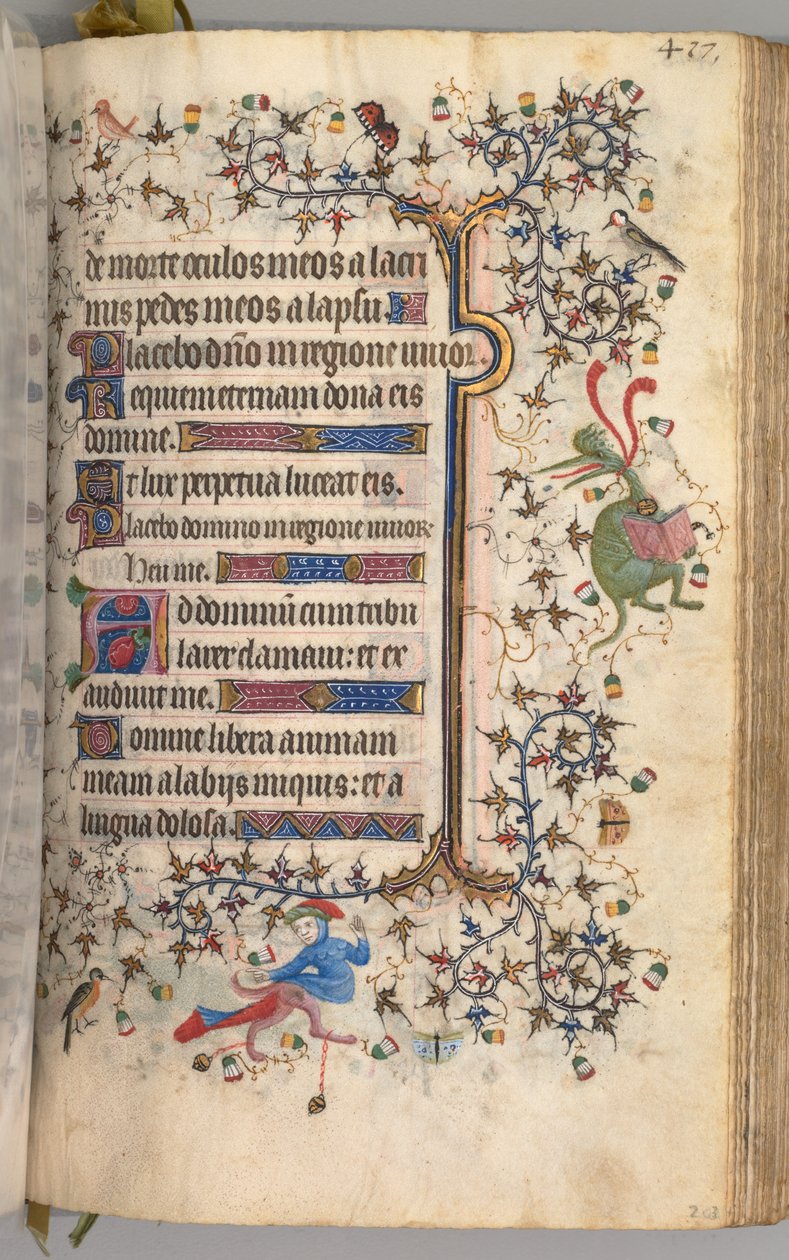 427,
de morte oculos meos a lacri
mis pedes meos a lapsu.
Placebo dño in regione uiuor.
Requiem eternam dona eis
domine.
Et lux perpetua luceat eis.
Placebo domino in regione uiuor
Heu me.
Ad dominū cum tribu
larer clamaui: et ex
audiuit me.
Domine libera animam
meam a labijs iniquis: et a
lingua dolosa.